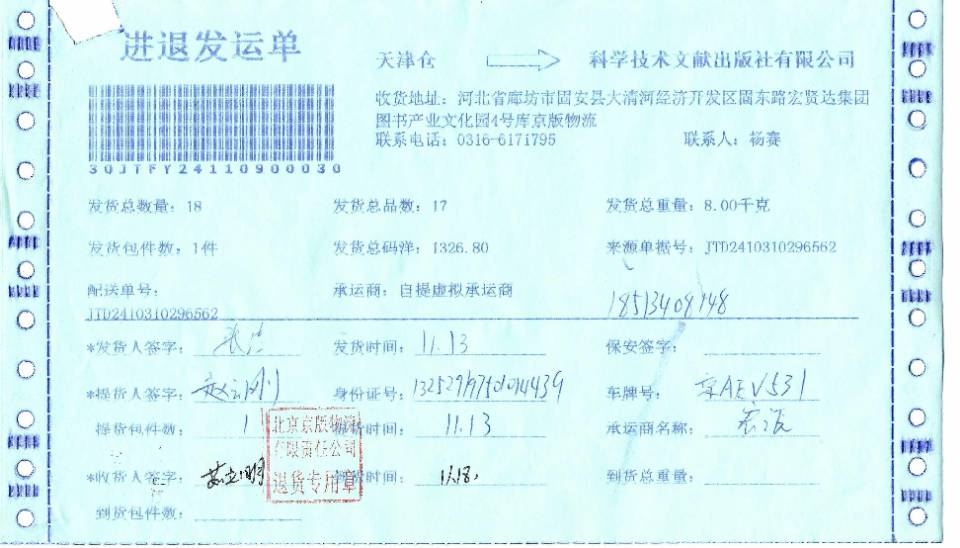 进退发运单
天津仓 科学技术文献出版社有限公司
收货地址：河北省廊坊市固安县大清河经济开发区固东路宏贤达集团
图书产业文化园4号库京版物流
联系电话：0316-6171795 联系人：杨赛
30JTFY24110900030
发货总数量：18 发货总品数：17 发货总重量：8.00千克
发货包件数：1件 发货总码洋：1326.80 来源单据号：JTD2410310296562
配送单号： 承运商：自提虚拟承运商
JTD2410310296562
*发货人签字： 发货时间：11.13 保安签字：
*提货人签字：赵云刚 身份证号： 车牌号：京AEV531
提货包件数：1 提货时间：11.13 承运商名称：
北京京版物流
有限责任公司
退货专用章
*收货人签字： 到货时间：11.18. 到货总重量：
到货包件数：